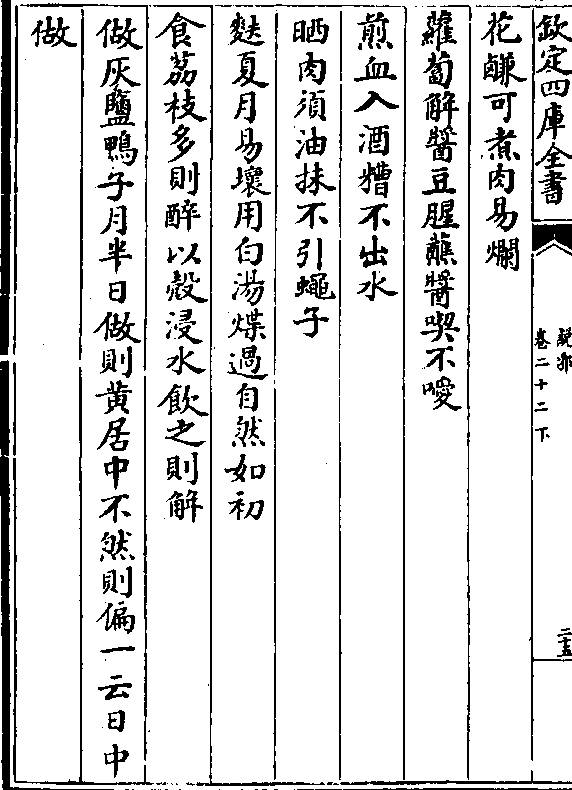 欽定四庫全書
說郛
卷二十二下
二十五
花鹻可煮肉易爛
蘿蔔解醬豆腥蘸醬喫不噯
煎血入酒糟不出水
晒肉須油抹不引蠅子
麩夏月易壞用白湯煠過自然如初
食荔枝多則醉以殼浸水飲之則解
做灰鹽鴨子月半日做則黃居中不然則偏一云日中
做